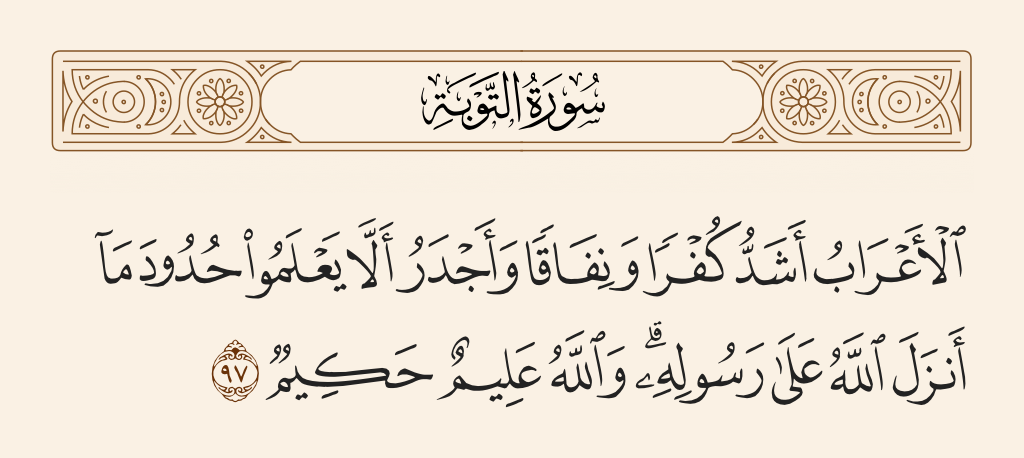 سُورَةُ التَّوْبَةِ
ٱلْأَعْرَابُ أَشَدُّ كُفْرًا وَنِفَاقًا وَأَجْدَرُ أَلَّا يَعْلَمُوا۟ حُدُودَ مَآ
أَنزَلَ ٱللَّهُ عَلَىٰ رَسُولِهِۦ ۗ وَٱللَّهُ عَلِيمٌ حَكِيمٌ ٩٧